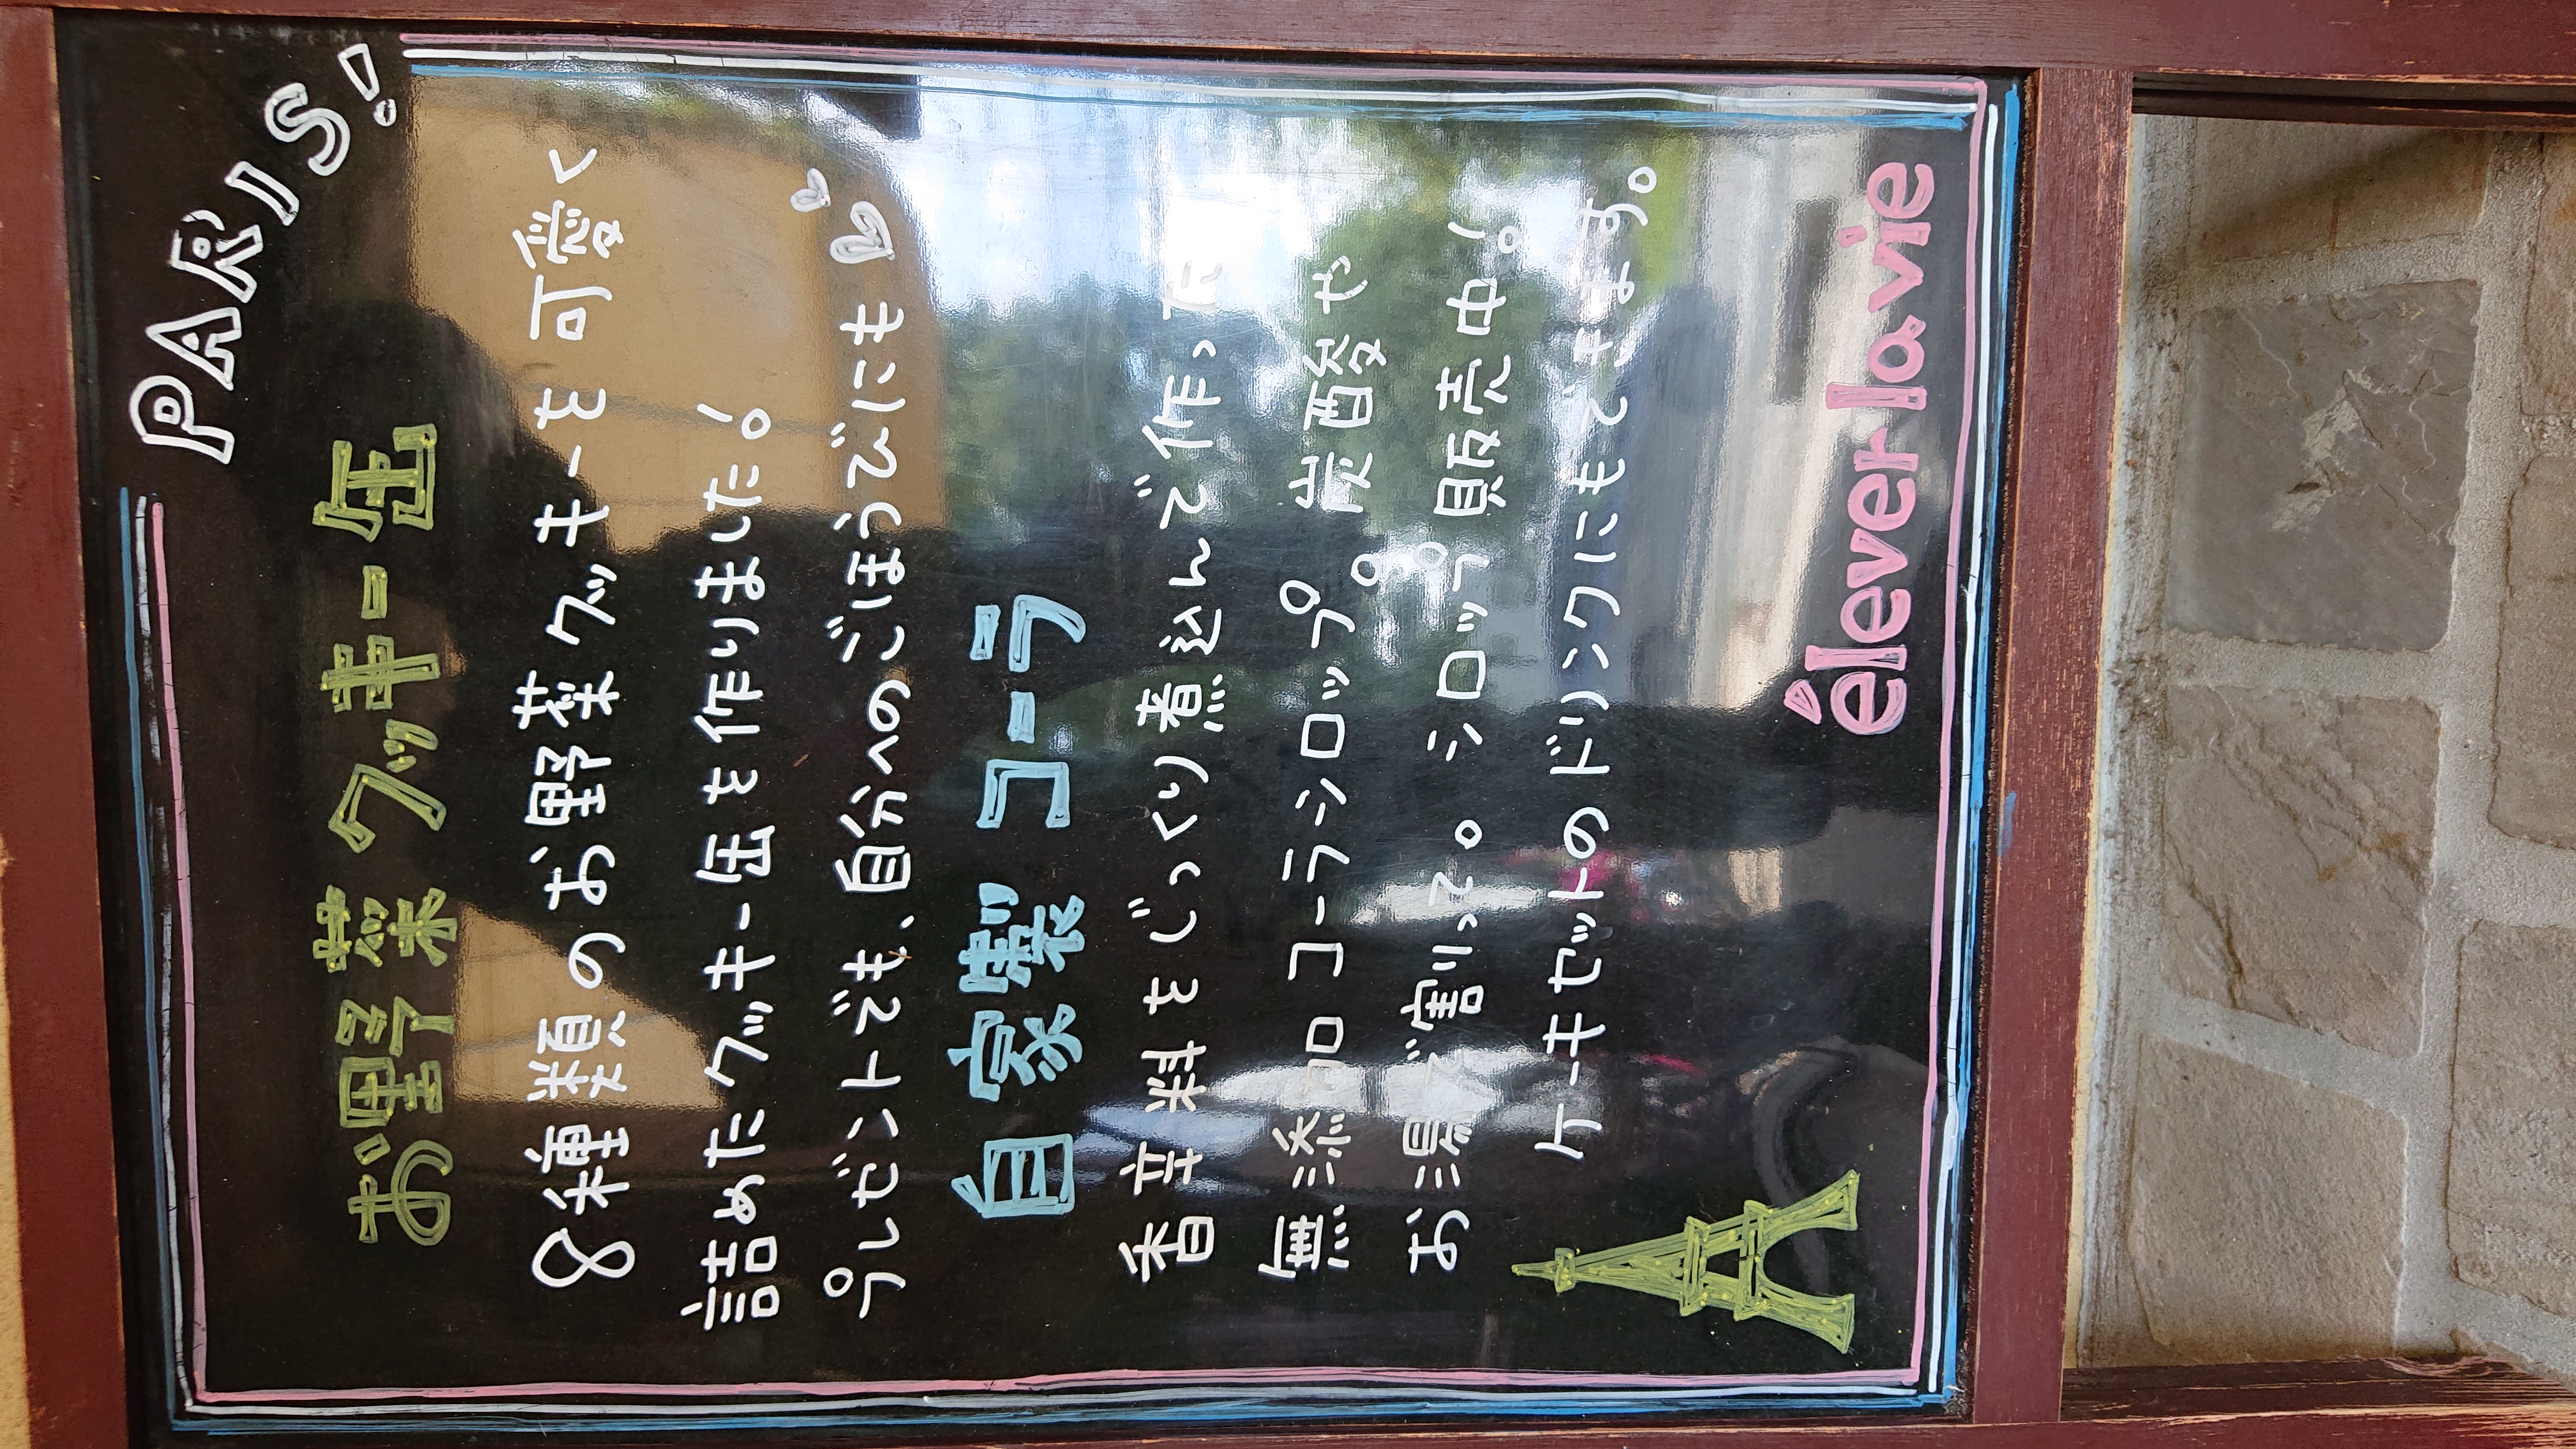 PARIS!
お野菜クッキー缶
8種類のお野菜クッキーを可愛く
詰めたクッキー缶を作りました。
プレゼントでも、自分へのごほうびにも
自家製コーラ
香辛料をじっくり煮込んで作った
無添加コーラシロップ。炭酸や
お湯で割って。シロップ販売中。
ケーキセットのドリンクにもできます。
élever la vie